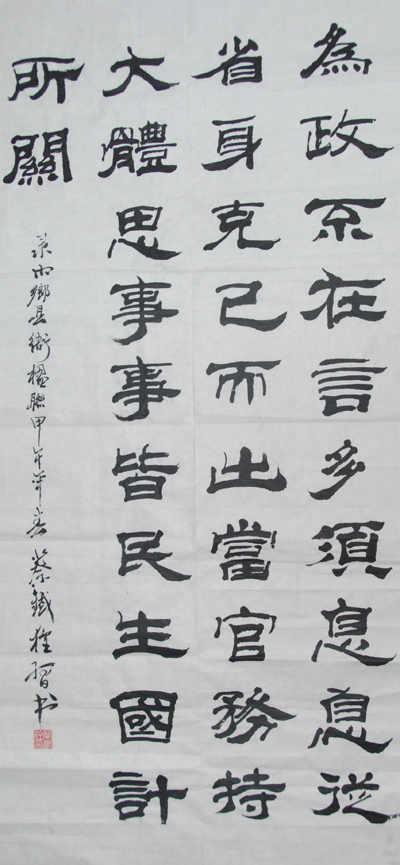 為政不在言多須息息從
省身克己而出當官務持
大體思事事皆民生國計
所關
录内鄉县衙楹聯甲午年春蔡鐵習书